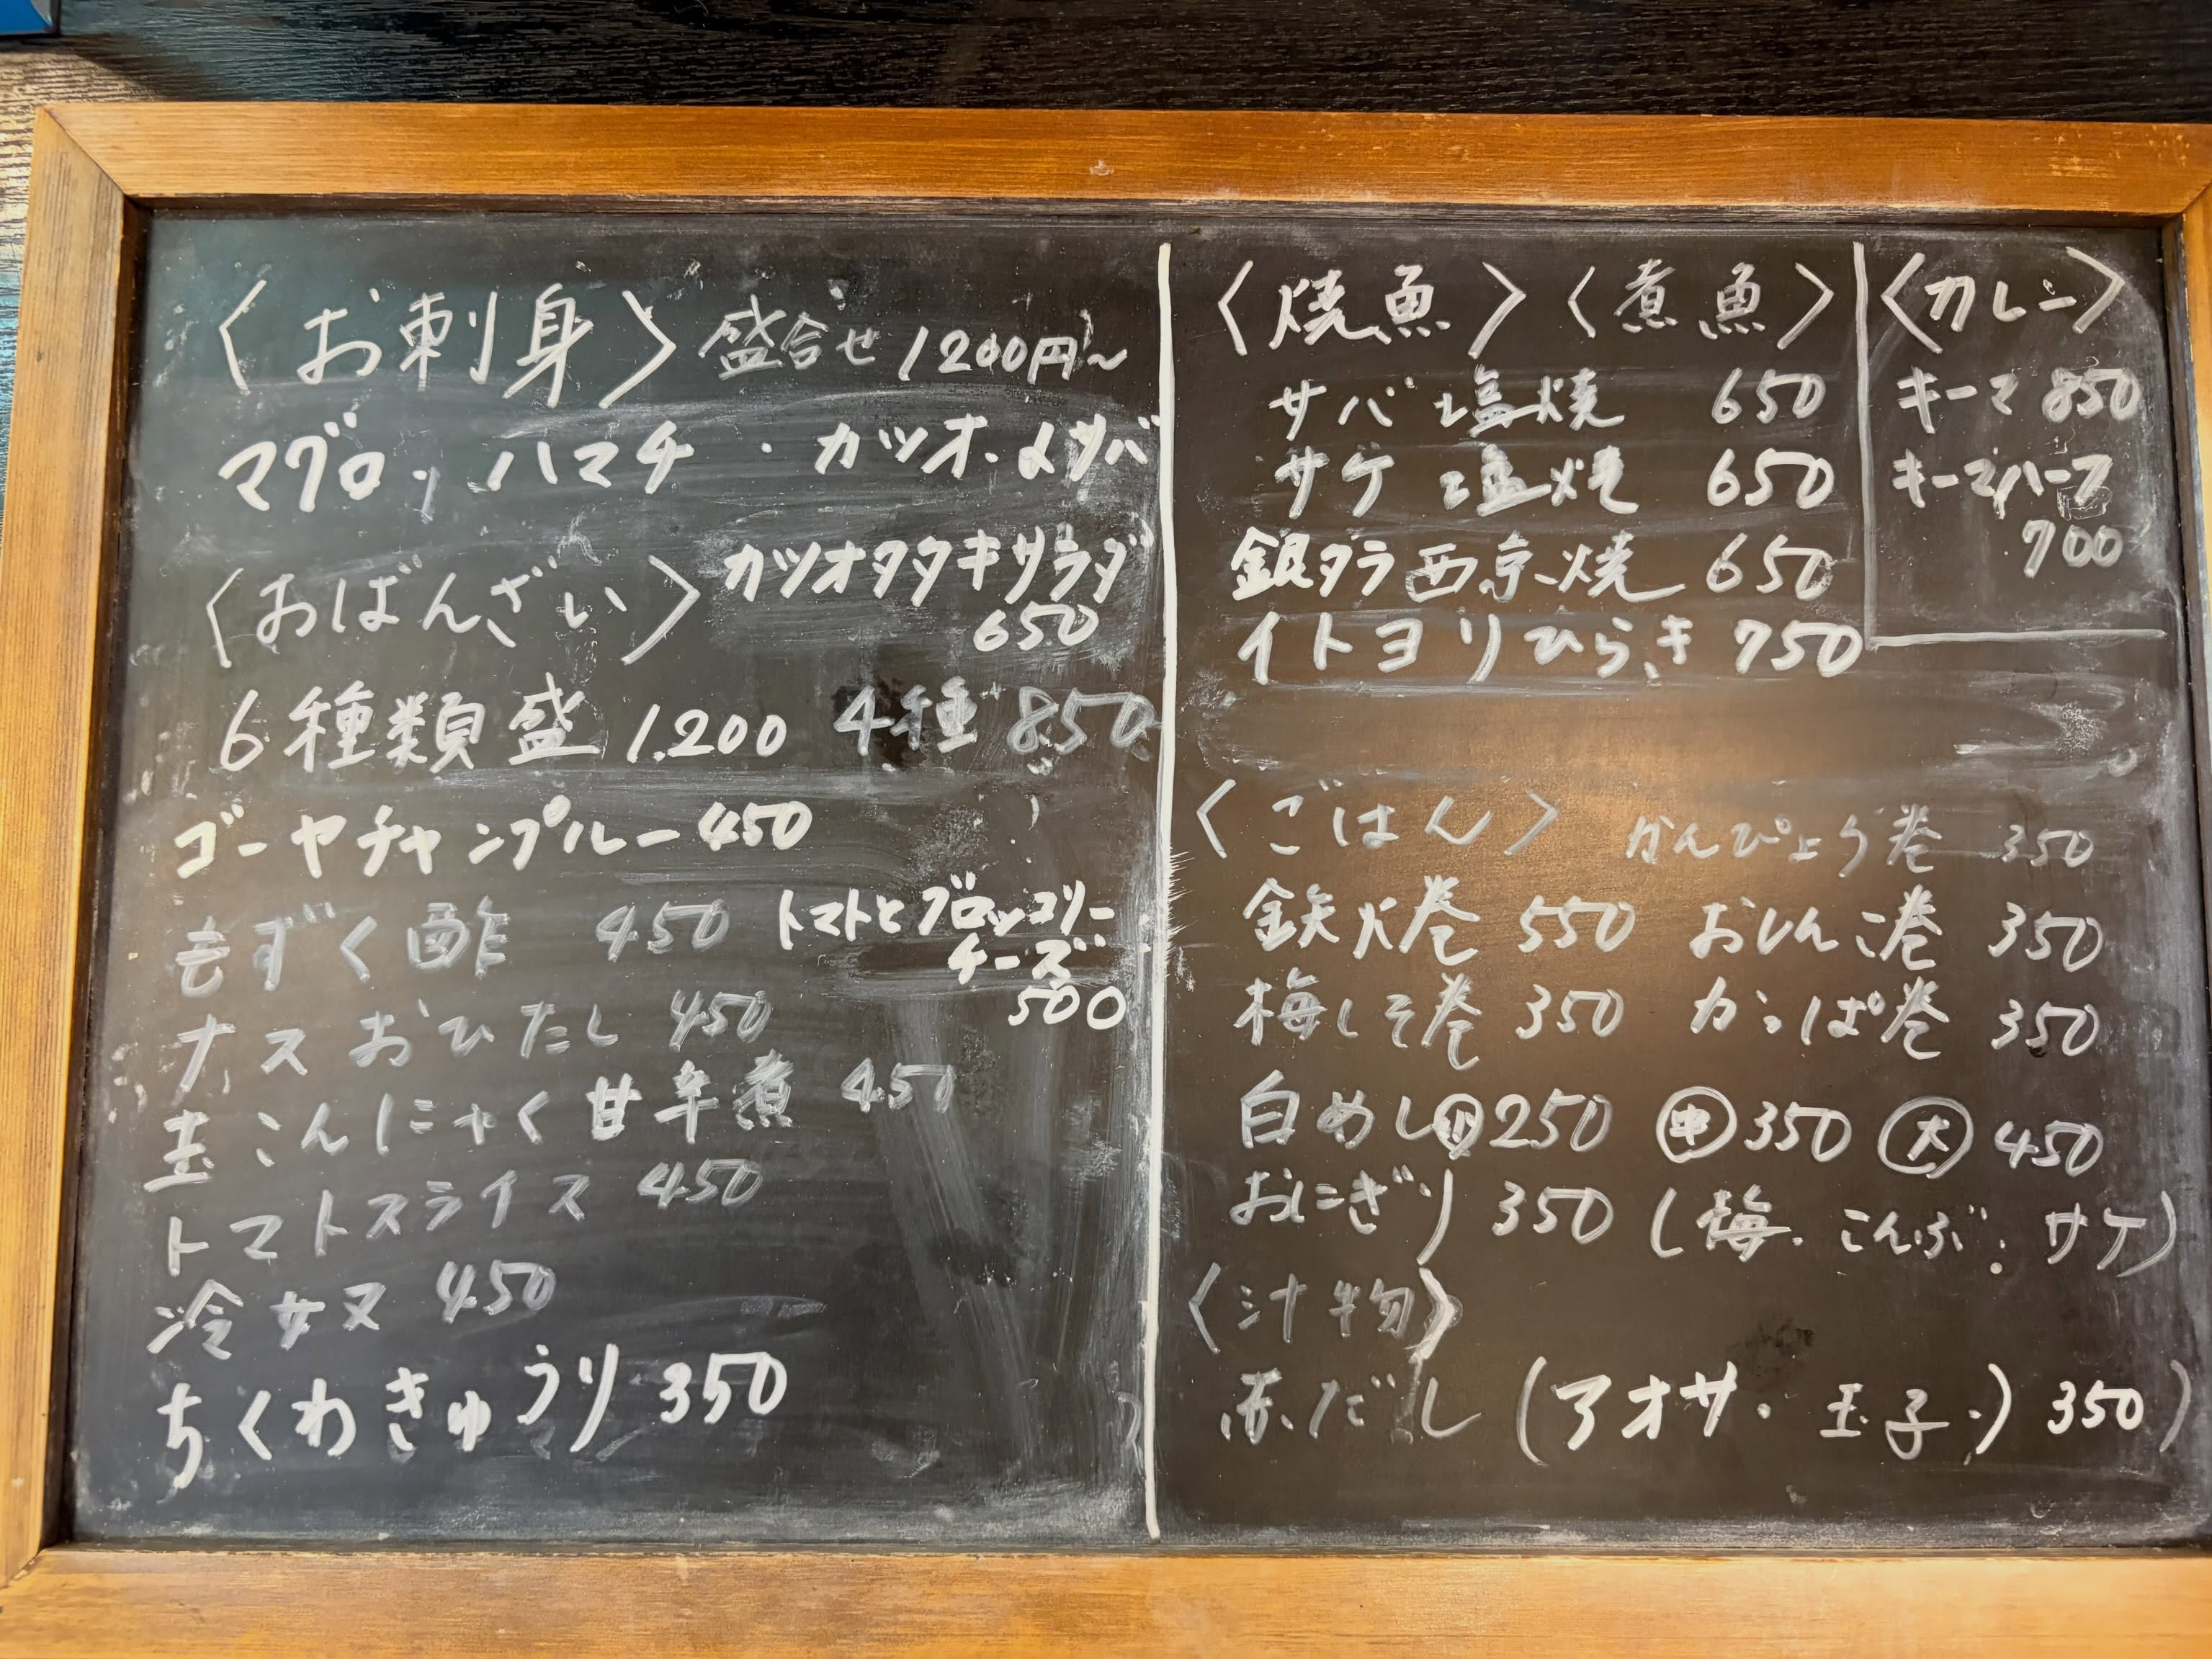 〈お刺身〉盛合せ 1200円〜
マグロ・ハマチ・カツオ・〆サバ
〈おばんざい〉
カツオタタキサラダ
650
6種類盛 1.200 4種 850
ゴーヤチャンプルー 450
もずく酢 450
トマトとブロッコリー
チーズ
500
ナスおひたし 450
玉こんにゃく甘辛煮 450
トマトスライス 450
冷奴 450
ちくわきゅうり 350
〈焼魚〉〈煮魚〉
サバ塩焼 650
サケ塩焼 650
銀ダラ西京焼 650
イトヨリひらき 750
〈カレー〉
キーマ 850
キーマハーフ
700
〈ごはん〉 かんぴょう巻 350
鉄火巻 550 おしんこ巻 350
梅しそ巻 350 かっぱ巻 350
白めし㊙250 ㊥350 大 450
おにぎり 350 (梅・こんぶ・サケ)
〈汁物〉
赤だし (アオサ・玉子・) 350 )